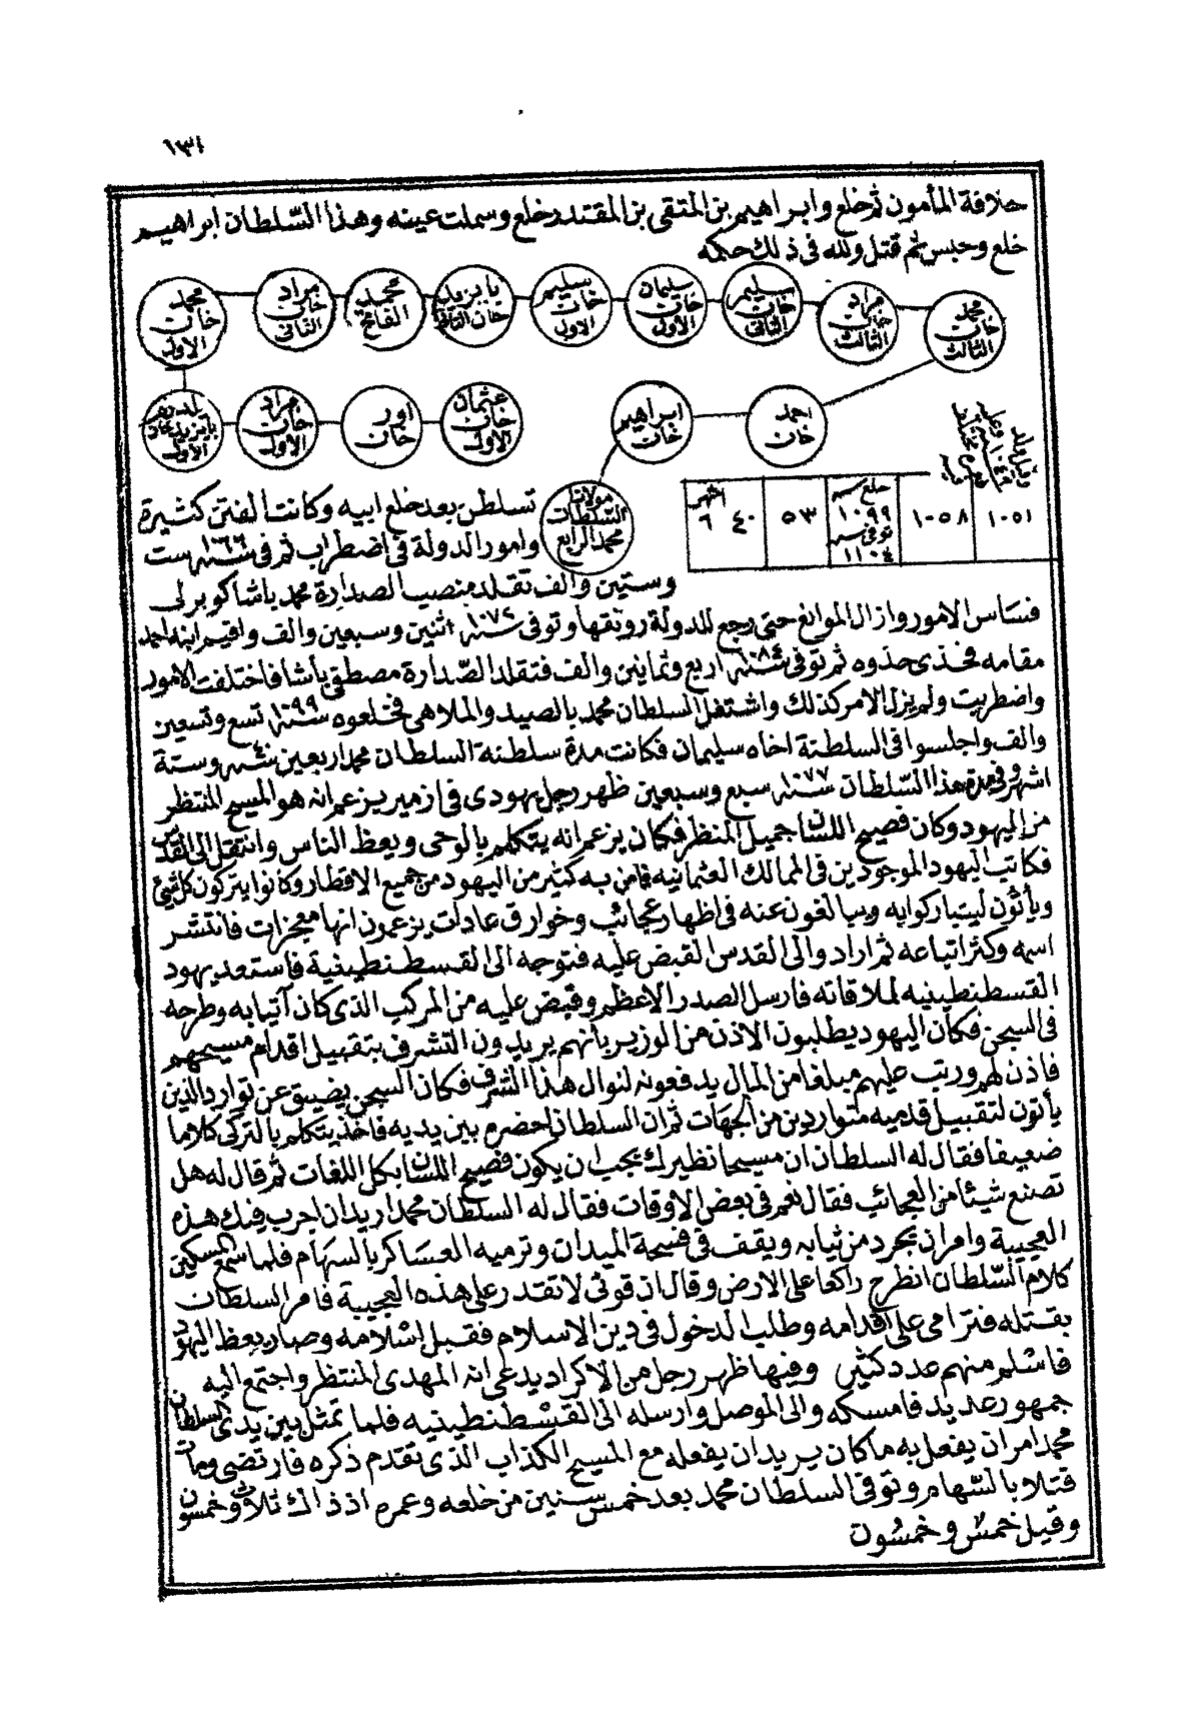 ١٣١
خلافة المأمون ثم خلع وابراهيم بن المتقي بن المقتدر خلع وسملت عينه وهذا السّلطان ابراهيم
خلع وحبس ثم قتل ولله في ذلك حكمه
محمد خان الثالث
مراد خان الثالث
سليم خان الثاني
سليمان خان الأول
سليم خان الاول
بايزيد خان الثاني
محمد الفاتح
مراد خان الثاني
محمد خان الاول
يلديرم بايزيد خان الاول
مراد خان الاول
اور خان
عثمان خان الاول
ابراهيم خان
احمد خان
مولانا السلطان محمد الرابع
وقيل ولد
١٠٥١
١٠٥٨
خلع سنه ١٠٩٩ توفي سنه ١١٠٤
٥٣
٤٠ اشهر ٦
تسلطن بعد خلع ابيه وكانت الفتن كثيرة
وامور الدولة في اضطراب ثم في سنة ١٠٦٦ ست
وستين والف تقلد منصب الصدارة محمد باشا كوبرلى
فساس الامور وازال الموانع حتى رجع للدولة رونقها وتوفى سنة ١٠٧٢ اثنين وسبعين والف واقيم ابنه احمد
مقامه فحذى حذوه ثم توفى سنة ١٠٨٤ اربع وثمانين والف فتقلد الصّدارة مصطفى باشا فاختلفت الامور
واضطربت ولم يزل الامر كذلك واشتغل السلطان محمد بالصيد والملاهى فخلعوه سنة ١٠٩٩ تسع وتسعين
والف واجلسوا فى السلطنة اخاه سليمان فكانت مدة سلطنة السلطان محمد اربعين سنة ٤٠ وستة
اشهر وفى مدة هذا السّلطان سنة ١٠٧٧ سبع وسبعين ظهر رجل يهودى فى ازمير يزعم انه هو المسيح المنتظر
من اليهود وكان فصيح اللسان جميل المنظر فكان يزعم انه يتكلم بالوحى ويعظ الناس وانتقل الى القدس
فكاتب اليهود الموجودين فى الممالك العثمانيه فامن به كثير من اليهود من جميع الاقطار وكانوا يتركون كل شئ
ويأتون ليتباركوا به ويبالغون عنه فى اظهار عجائب وخوارق عادات يزعمون انها معجزات فانتشر
اسمه وكثر اتباعه ثم اراد والى القدس القبض عليه فتوجه الى القسطنطينية فاستعد يهود
القسطنطينيه لملاقاته فارسل الصدر الاعظم وقبض عليه من المركب الذى كان آتيا به وطرحه
فى السجن فكان اليهود يطلبون الاذن من الوزير بأنهم يريدون التشرف بتقبيل اقدام مسيحهم
فاذن لهم ورتب عليهم مبلغا من المال يدفعونه لنوال هذا الشرف فكان السجن يضيق عن توارد الذين
يأتون لتقبيل قدميه متواردين من الجهات ثم ان السلطان احضره بين يديه فاخذ يتكلم بالتركى كلاما
ضعيفا فقال له السلطان ان مسيحا نظيرك يجب ان يكون فصيح اللسان بكل اللغات ثم قال له هل
تصنع شيئا من العجائب فقال نعم فى بعض الاوقات فقال له السلطان محمد اريد ان اجرب فيك هذه
العجيبة وامر ان يجرد من ثيابه ويقف فى فسحة الميدان وترميه العساكر بالسهام فلما سمع المسكين
كلام السّلطان انطرح راكعا على الارض وقال ان قوتى لا تقدر على هذه العجيبة فامر السلطان
بقتله فترامى على اقدامه وطلب الدخول فى دين الاسلام فقبل اسلامه وصار يعظ اليهود
فاسلم منهم عدد كثير وفيها ظهر رجل من الاكراد يدعى انه المهدى المنتظر واجتمع اليه
جمهور عديد فامسكه والى الموصل وارسله الى القسطنطينيه فلما تمثل بين يدى السلطان
محمد امر ان يفعل به ما كان يريد ان يفعله مع المسيح الكذاب الذى تقدم ذكره فارتضى ومات
قتلا بالسّهام وتوفى السلطان محمد بعد خمس سنين من خلعه وعمره اذ ذاك ثلاث وخمسون
وقيل خمس وخمسون